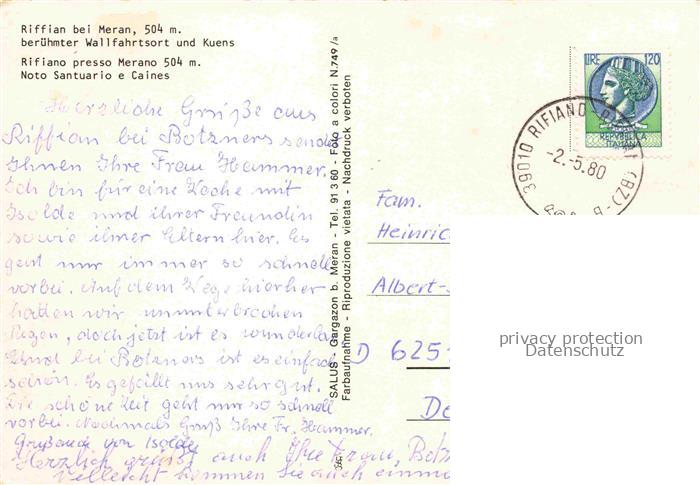 Riffian bei Meran, 504 m.
berühmter Wallfahrtsort und Kuens
Rifiano presso Merano 504 m.
Noto Santuario e Caines
Herzliche Grüße aus
Riffian bei Botzners sendet
Ihnen Ihre Frau Hammer.
Ich bin für eine Woche mit
Isolde und ihrer Freundin
sowie ihrer Eltern hier. Es
geht nur immer so schnell
vorbei. Auf dem Wege hierher
hatten wir ununterbrochen
Regen, doch jetzt ist es wunderbar
Und bei Botzners ist es einfach
schön. Es gefällt uns sehr gut.
Die schöne Zeit geht nur so schnell
vorbei. Nochmals Gruß Ihre Fr. Hammer.
Gruß auch von Isolde
Herzlich grüßt auch Ihre Frau Botz
Vielleicht kommen Sie auch einm
SALUS - Gargazon b. Meran - Tel. 91 3 60 - Foto a colori N. 749/a
Farbaufnahme - Riproduzione vietata - Nachdruck verboten
LIRE 120
REPVBBLICA
ITALIANA
39010 RIFIANO
(BZ)
-2.-5.80
Fam.
Heinric
Albert-
D 625
De
privacy protection
Datenschutz